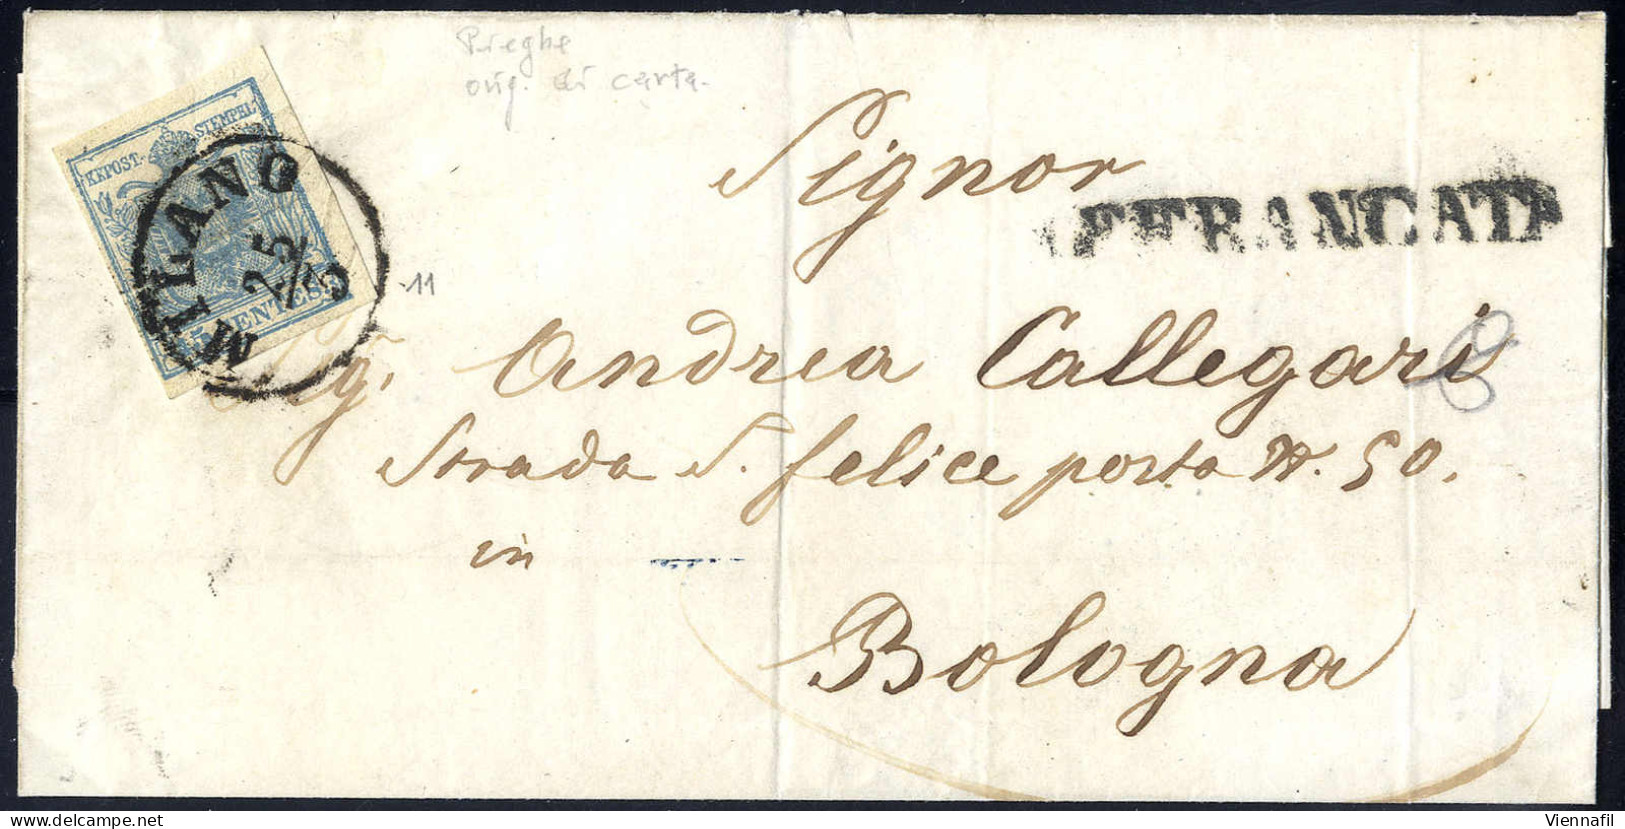 Pieghe
orig. di carta.
KKPOST-STEMPEL
MILANO
25/3
45 CENTES
11
Signor
AFFRANCATA
Sig. Andrea Callegari
8
Strada S. felice porta N. 50.
in
Bologna
Viennafil